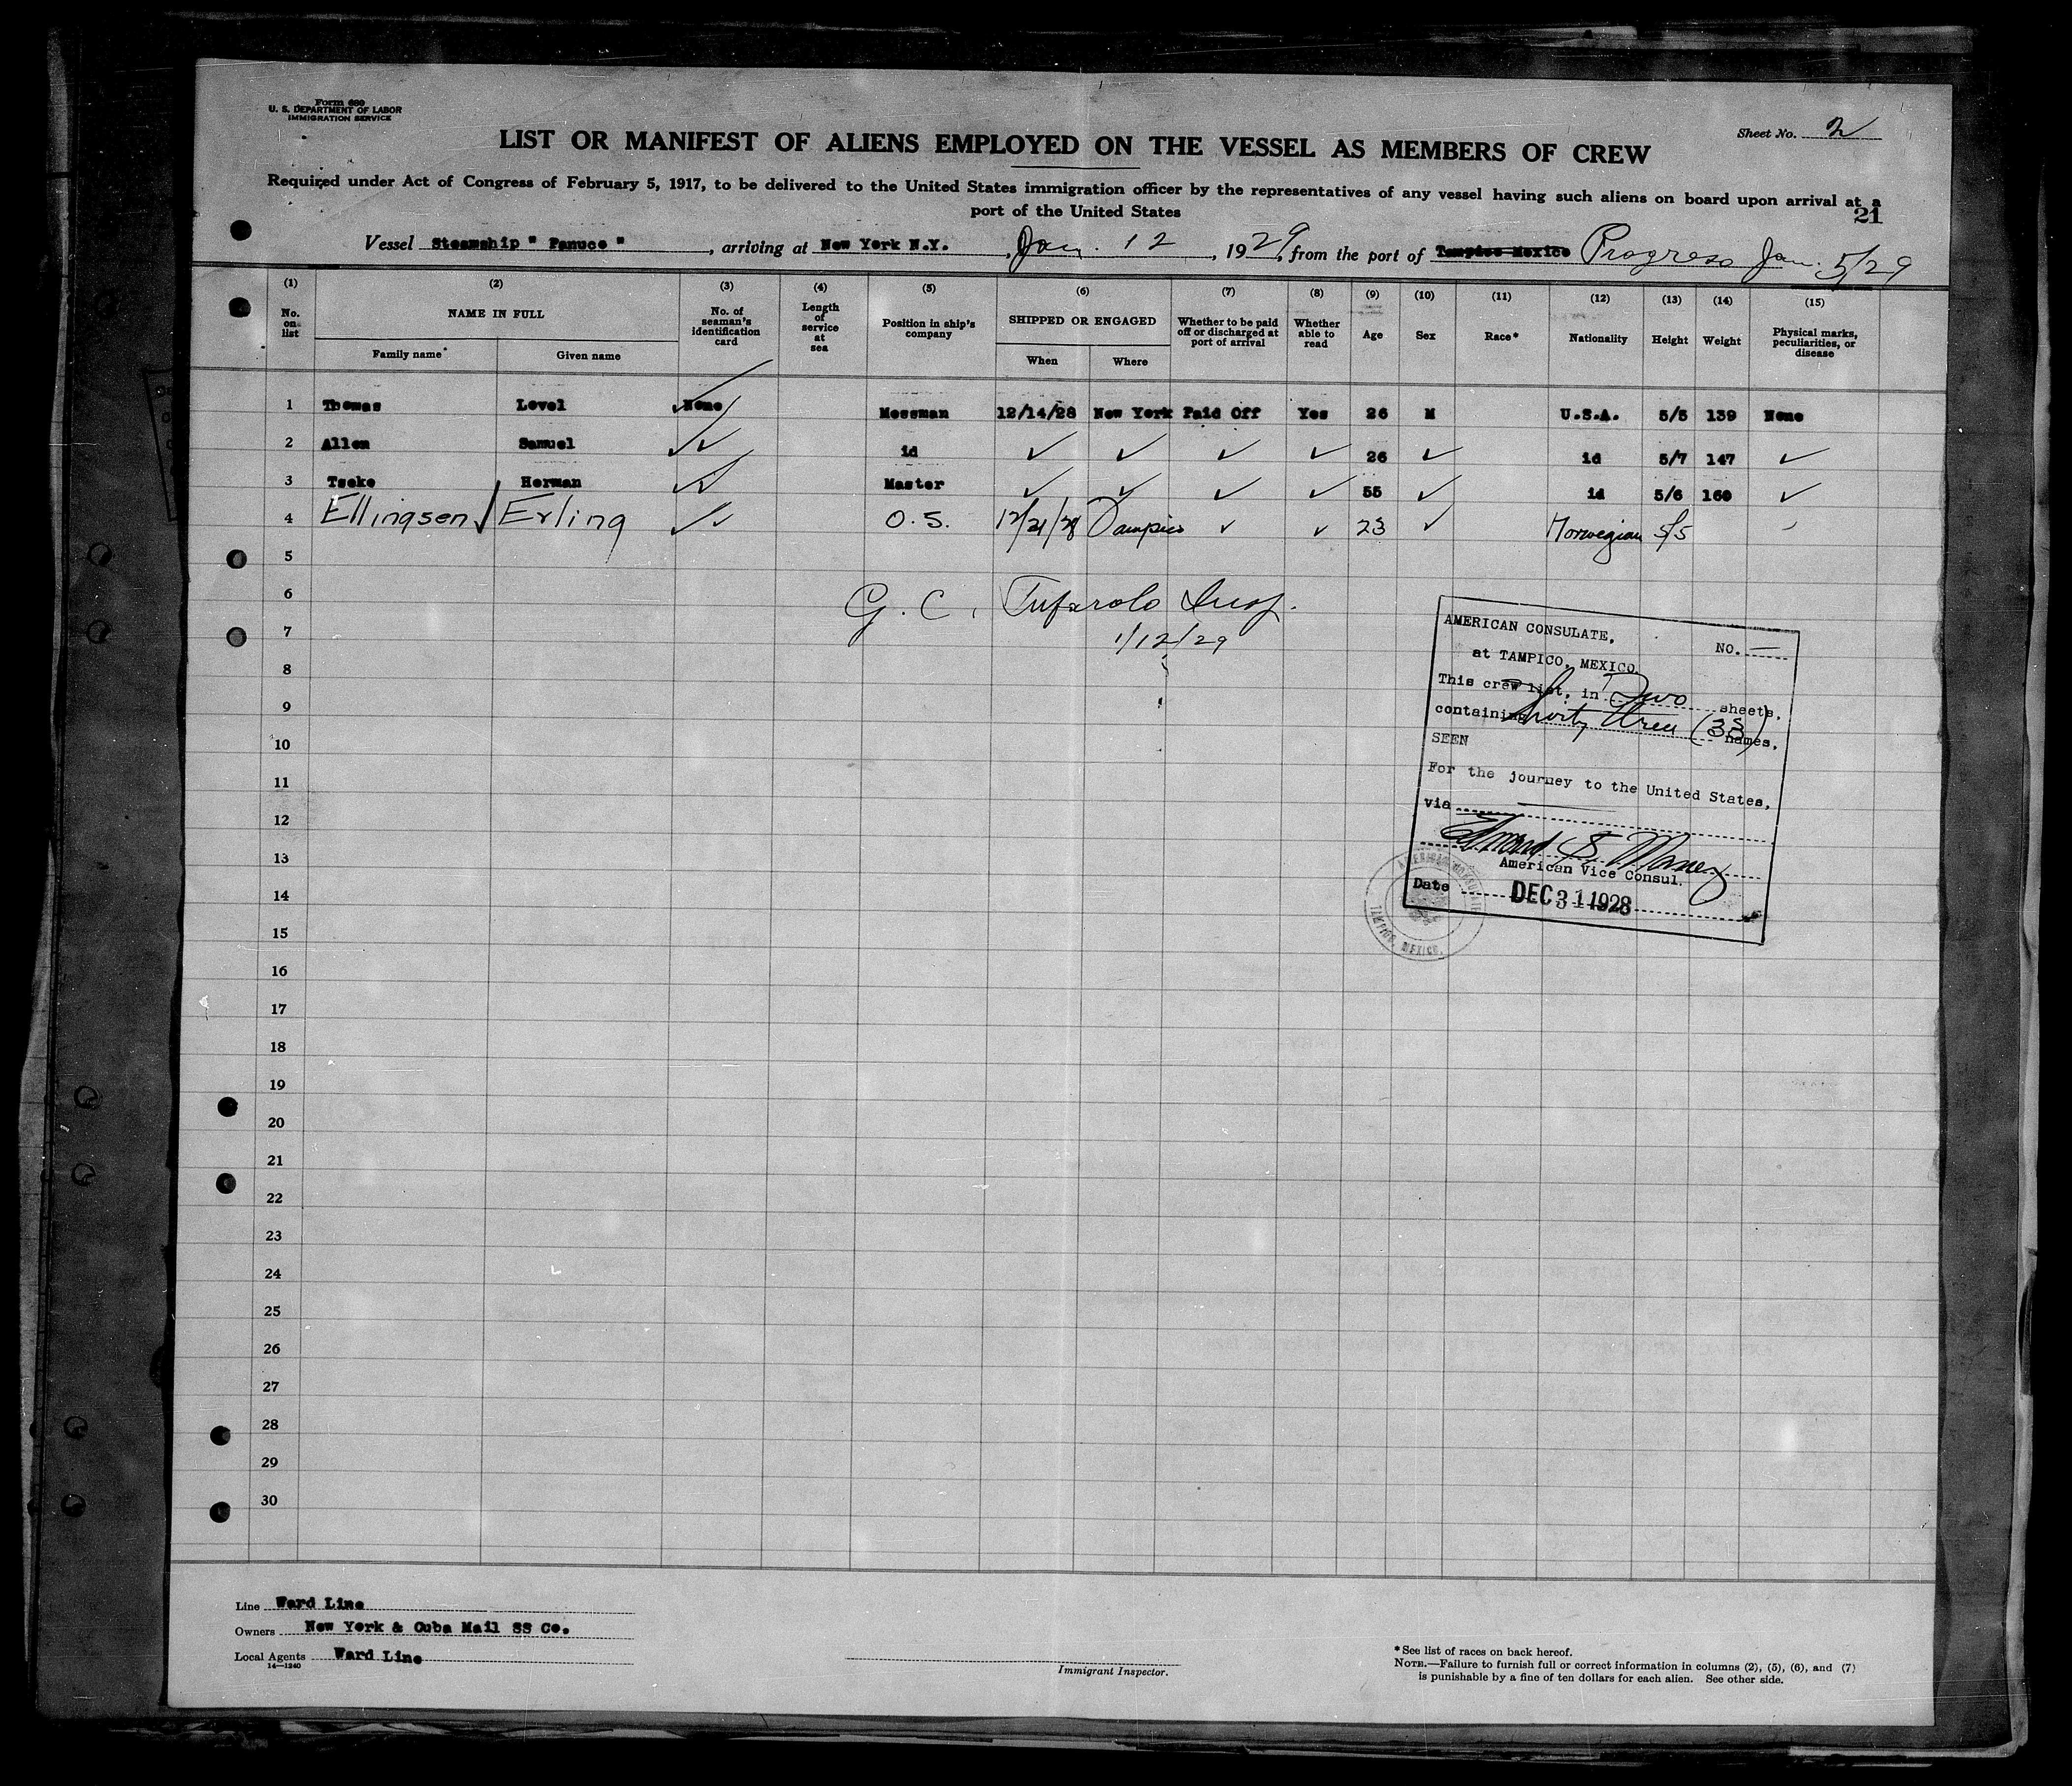 Form 680
U. S. DEPARTMENT OF LABOR
IMMIGRATION SERVICE
Sheet No. 2
LIST OR MANIFEST OF ALIENS EMPLOYED ON THE VESSEL AS MEMBERS OF CREW
Required under Act of Congress of February 5, 1917, to be delivered to the United States immigration officer by the representatives of any vessel having such aliens on board upon arrival at a
port of the United States
21
Vessel Steamship " Panuco ", arriving at New York N.Y., Jan. 12, 1929, from the port of Tampico Mexico Progreso Jan. 5/29
(1) (2) (3) (4) (5) (6) (7) (8) (9) (10) (11) (12) (13) (14) (15)
No. on list NAME IN FULL Family name* Given name No. of seaman's identification card Length of service at sea Position in ship's company SHIPPED OR ENGAGED When Where Whether to be paid off or discharged at port of arrival Whether able to read Age Sex Race* Nationality Height Weight Physical marks, peculiarities, or disease
1 Thomas Lovel None Messman 12/14/28 New York Paid Off Yes 26 M U.S.A. 5/5 139 None
2 Allen Samuel ✓ id ✓ ✓ ✓ ✓ 26 ✓ id 5/7 147 ✓
3 Tseke Herman ✓ Master ✓ ✓ ✓ ✓ 55 ✓ id 5/6 160 ✓
4 Ellingsen Erling ✓✓ O.S. 12/21/28 Tampico ✓ ✓ 23 ✓ Norwegian 5/5
5
6
G. C. Insp.
7
1/12/29
8
9
10
11
12
13
14
15
16
17
18
19
20
21
22
23
24
25
26
27
28
29
30
AMERICAN CONSULATE,
NO. —
at TAMPICO, MEXICO.
This crew list, in Two sheets,
containing thirty three (33) names,
SEEN
For the journey to the United States,
via
American Vice Consul.
Date DEC 31 1928
AMERICAN CONSULATE
TAMPICO, MEXICO.
Line Ward Line
Owners New York & Cuba Mail SS Co.
Local Agents Ward Line
14—1240
Immigrant Inspector.
* See list of races on back hereof.
NOTE.—Failure to furnish full or correct information in columns (2), (5), (6), and (7)
is punishable by a fine of ten dollars for each alien. See other side.